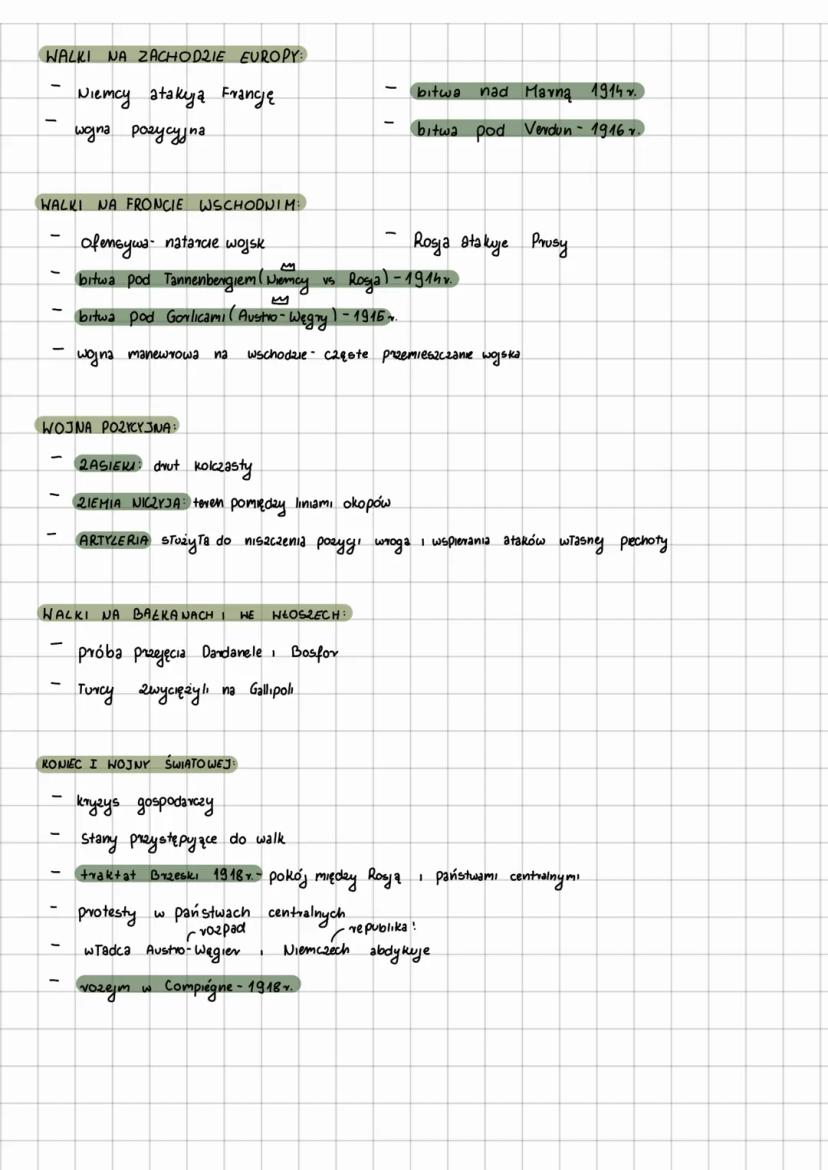 WALKI NA ZACHODZIE EUROPY:
- Niemcy atakują Francję
- bitwa nad Marną 1914 r.
- wojna pozycyjna
- bitwa pod Verdun - 1916 r.
WALKI NA FRONCIE WSCHODNIM:
- Ofensywa - natarcie wojsk
- Rosja atakuje Prusy
- bitwa pod Tannenbergiem (Niemcy vs Rosja) - 1914 r.
- bitwa pod Gorlicami (Austro-Węgry) - 1915 r.
- wojna manewrowa na wschodzie - częste przemieszczanie wojska
WOJNA POZYCYJNA:
- ZASIEKI: drut kolczasty
- ZIEMIA NICZYJA: teren pomiędzy liniami okopów
- ARTYLERIA służyła do niszczenia pozycji wroga i wspierania ataków własnej piechoty
WALKI NA BAŁKANACH I WE WŁOSZECH:
- próba przejęcia Dardanele i Bosfor
- Turcy zwyciężyli na Gallipoli
KONIEC I WOJNY ŚWIATOWEJ:
- kryzys gospodarczy
- Stany przystępujące do walk
- traktat Brzeski 1918 r. - pokój między Rosją i państwami centralnymi
- protesty w państwach centralnych
rozpad republika!
- władca Austro-Węgier i Niemczech abdykuje
- rozejm w Compiégne - 1918 r.